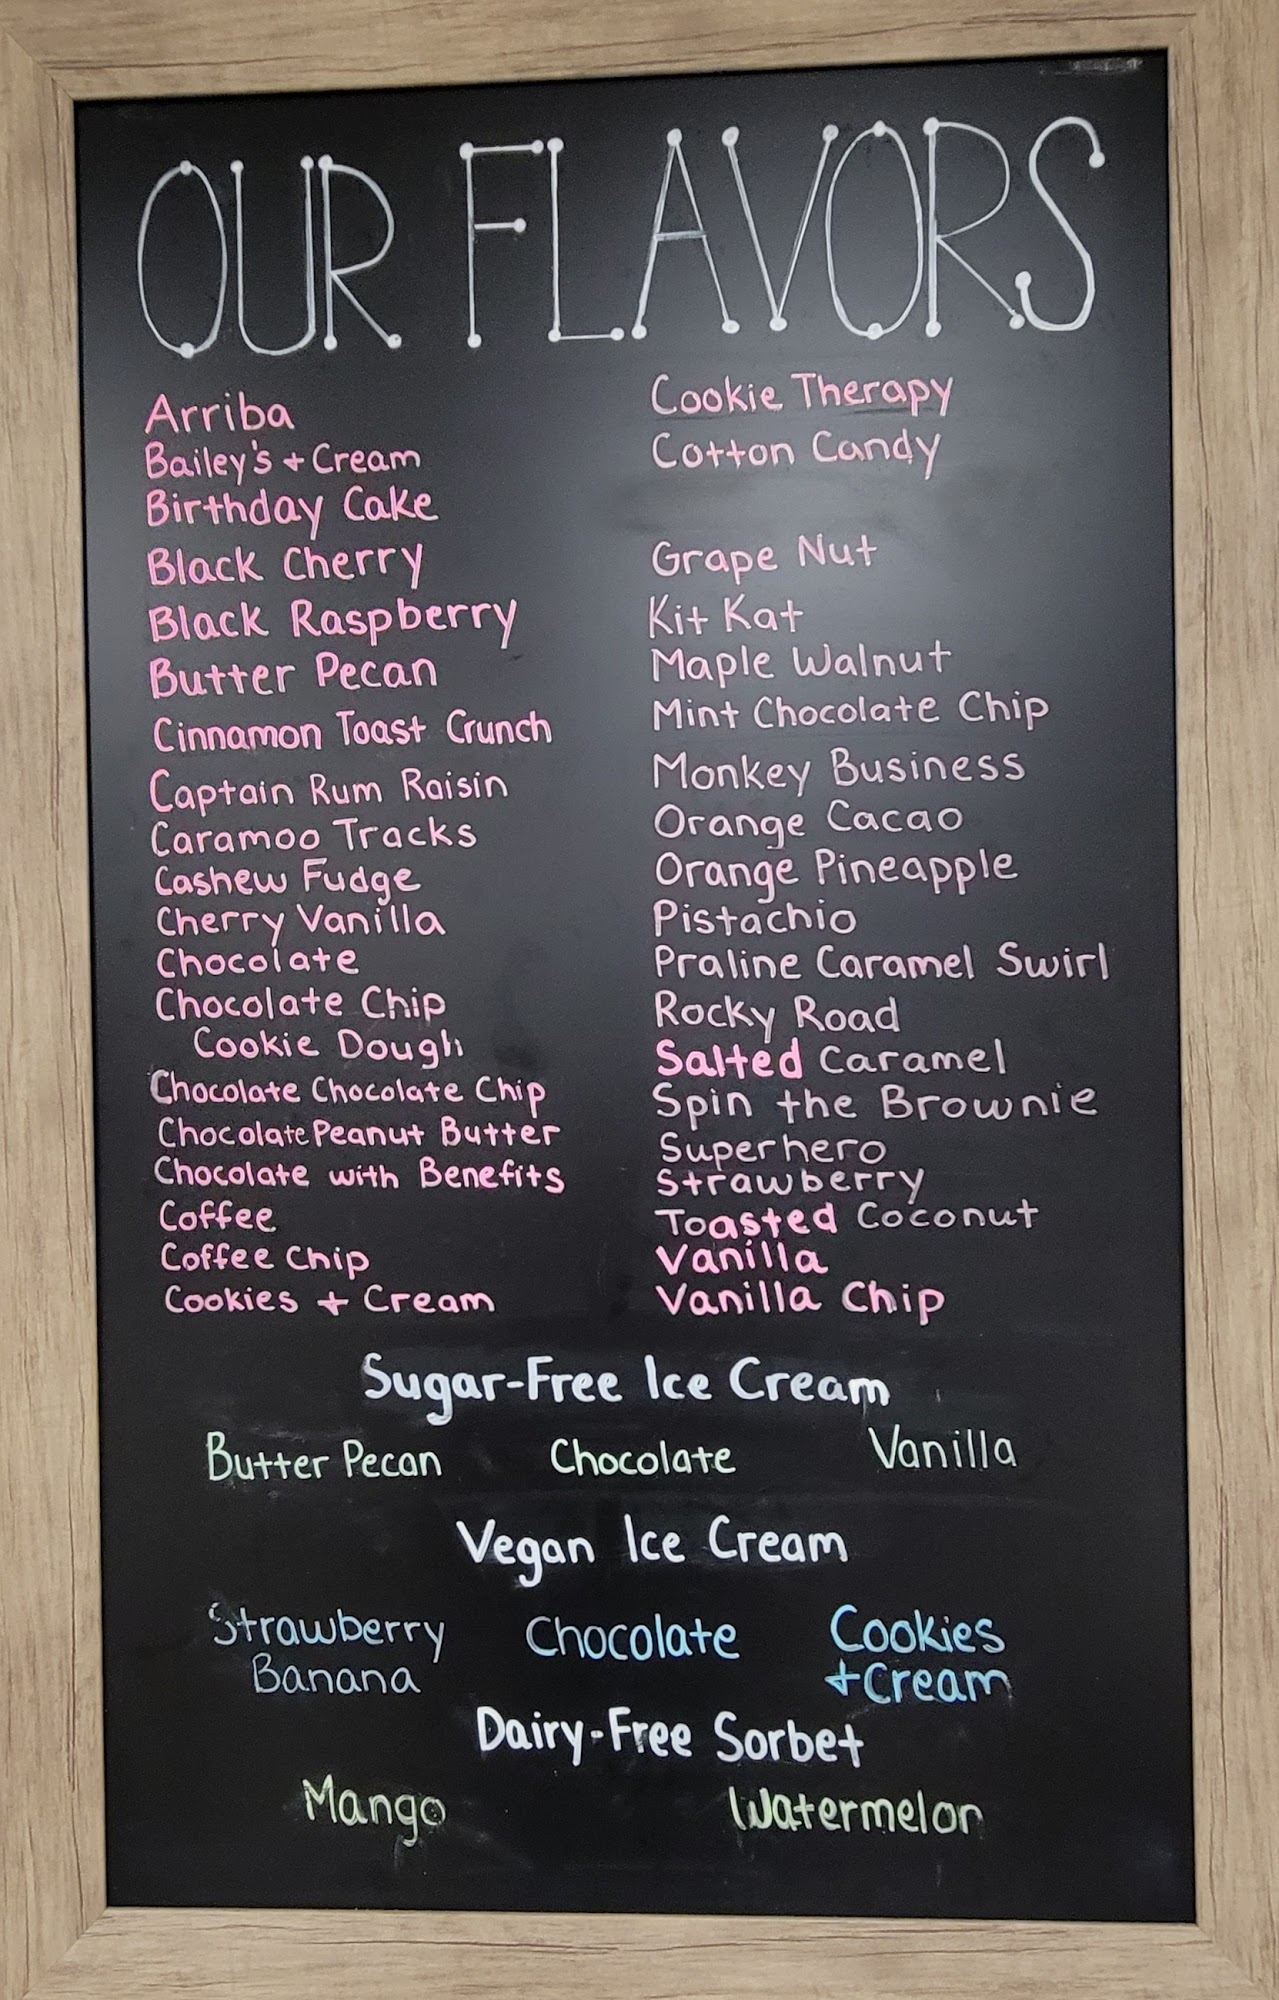 OUR FLAVORS
Arriba
Bailey's + Cream
Birthday Cake
Black Cherry
Black Raspberry
Butter Pecan
Cinnamon Toast Crunch
Captain Rum Raisin
Caramoo Tracks
Cashew Fudge
Cherry Vanilla
Chocolate
Chocolate Chip
Cookie Dough
Chocolate Chocolate Chip
Chocolate Peanut Butter
Chocolate with Benefits
Coffee
Coffee Chip
Cookies + Cream
Cookie Therapy
Cotton Candy
Grape Nut
Kit Kat
Maple Walnut
Mint Chocolate Chip
Monkey Business
Orange Cacao
Orange Pineapple
Pistachio
Praline Caramel Swirl
Rocky Road
Salted Caramel
Spin the Brownie
Superhero
Strawberry
Toasted Coconut
Vanilla
Vanilla Chip
Sugar-Free Ice Cream
Butter Pecan Chocolate Vanilla
Vegan Ice Cream
Strawberry Chocolate Cookies
Banana +Cream
Dairy-Free Sorbet
Mango Watermelon